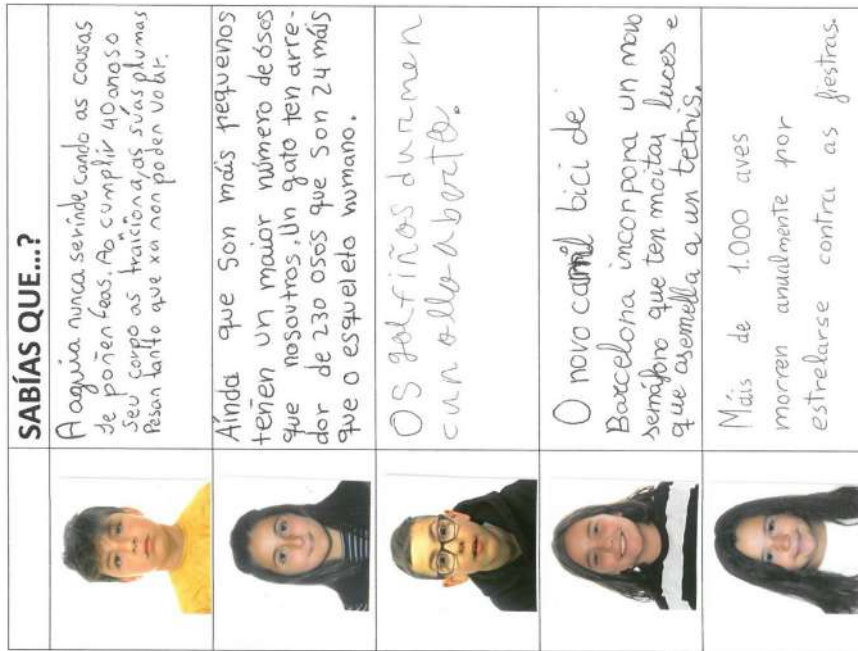 SABÍAS QUE...?
A aguia nunca se rinde cando as cousas
se poñen feas. Ao cumplir 40 anos o
seu corpo as traiciona, as súas plumas
Pesan tanto que xa non poden volar.
Aínda que son máis pequenos
teñen un maior número de ósos
que nosoutros. Un gato ten arre-
dor de 230 osos que son 24 máis
que o esqueleto humano.
Os golfiños durmen
cun ollo aberto.
O novo carril bici de
Barcelona incorpora un novo
semáforo que ten moitas luces e
que asemella a un tetris.
Máis de 1.000 aves
morren anualmente por
estrelarse contra as fiestras.